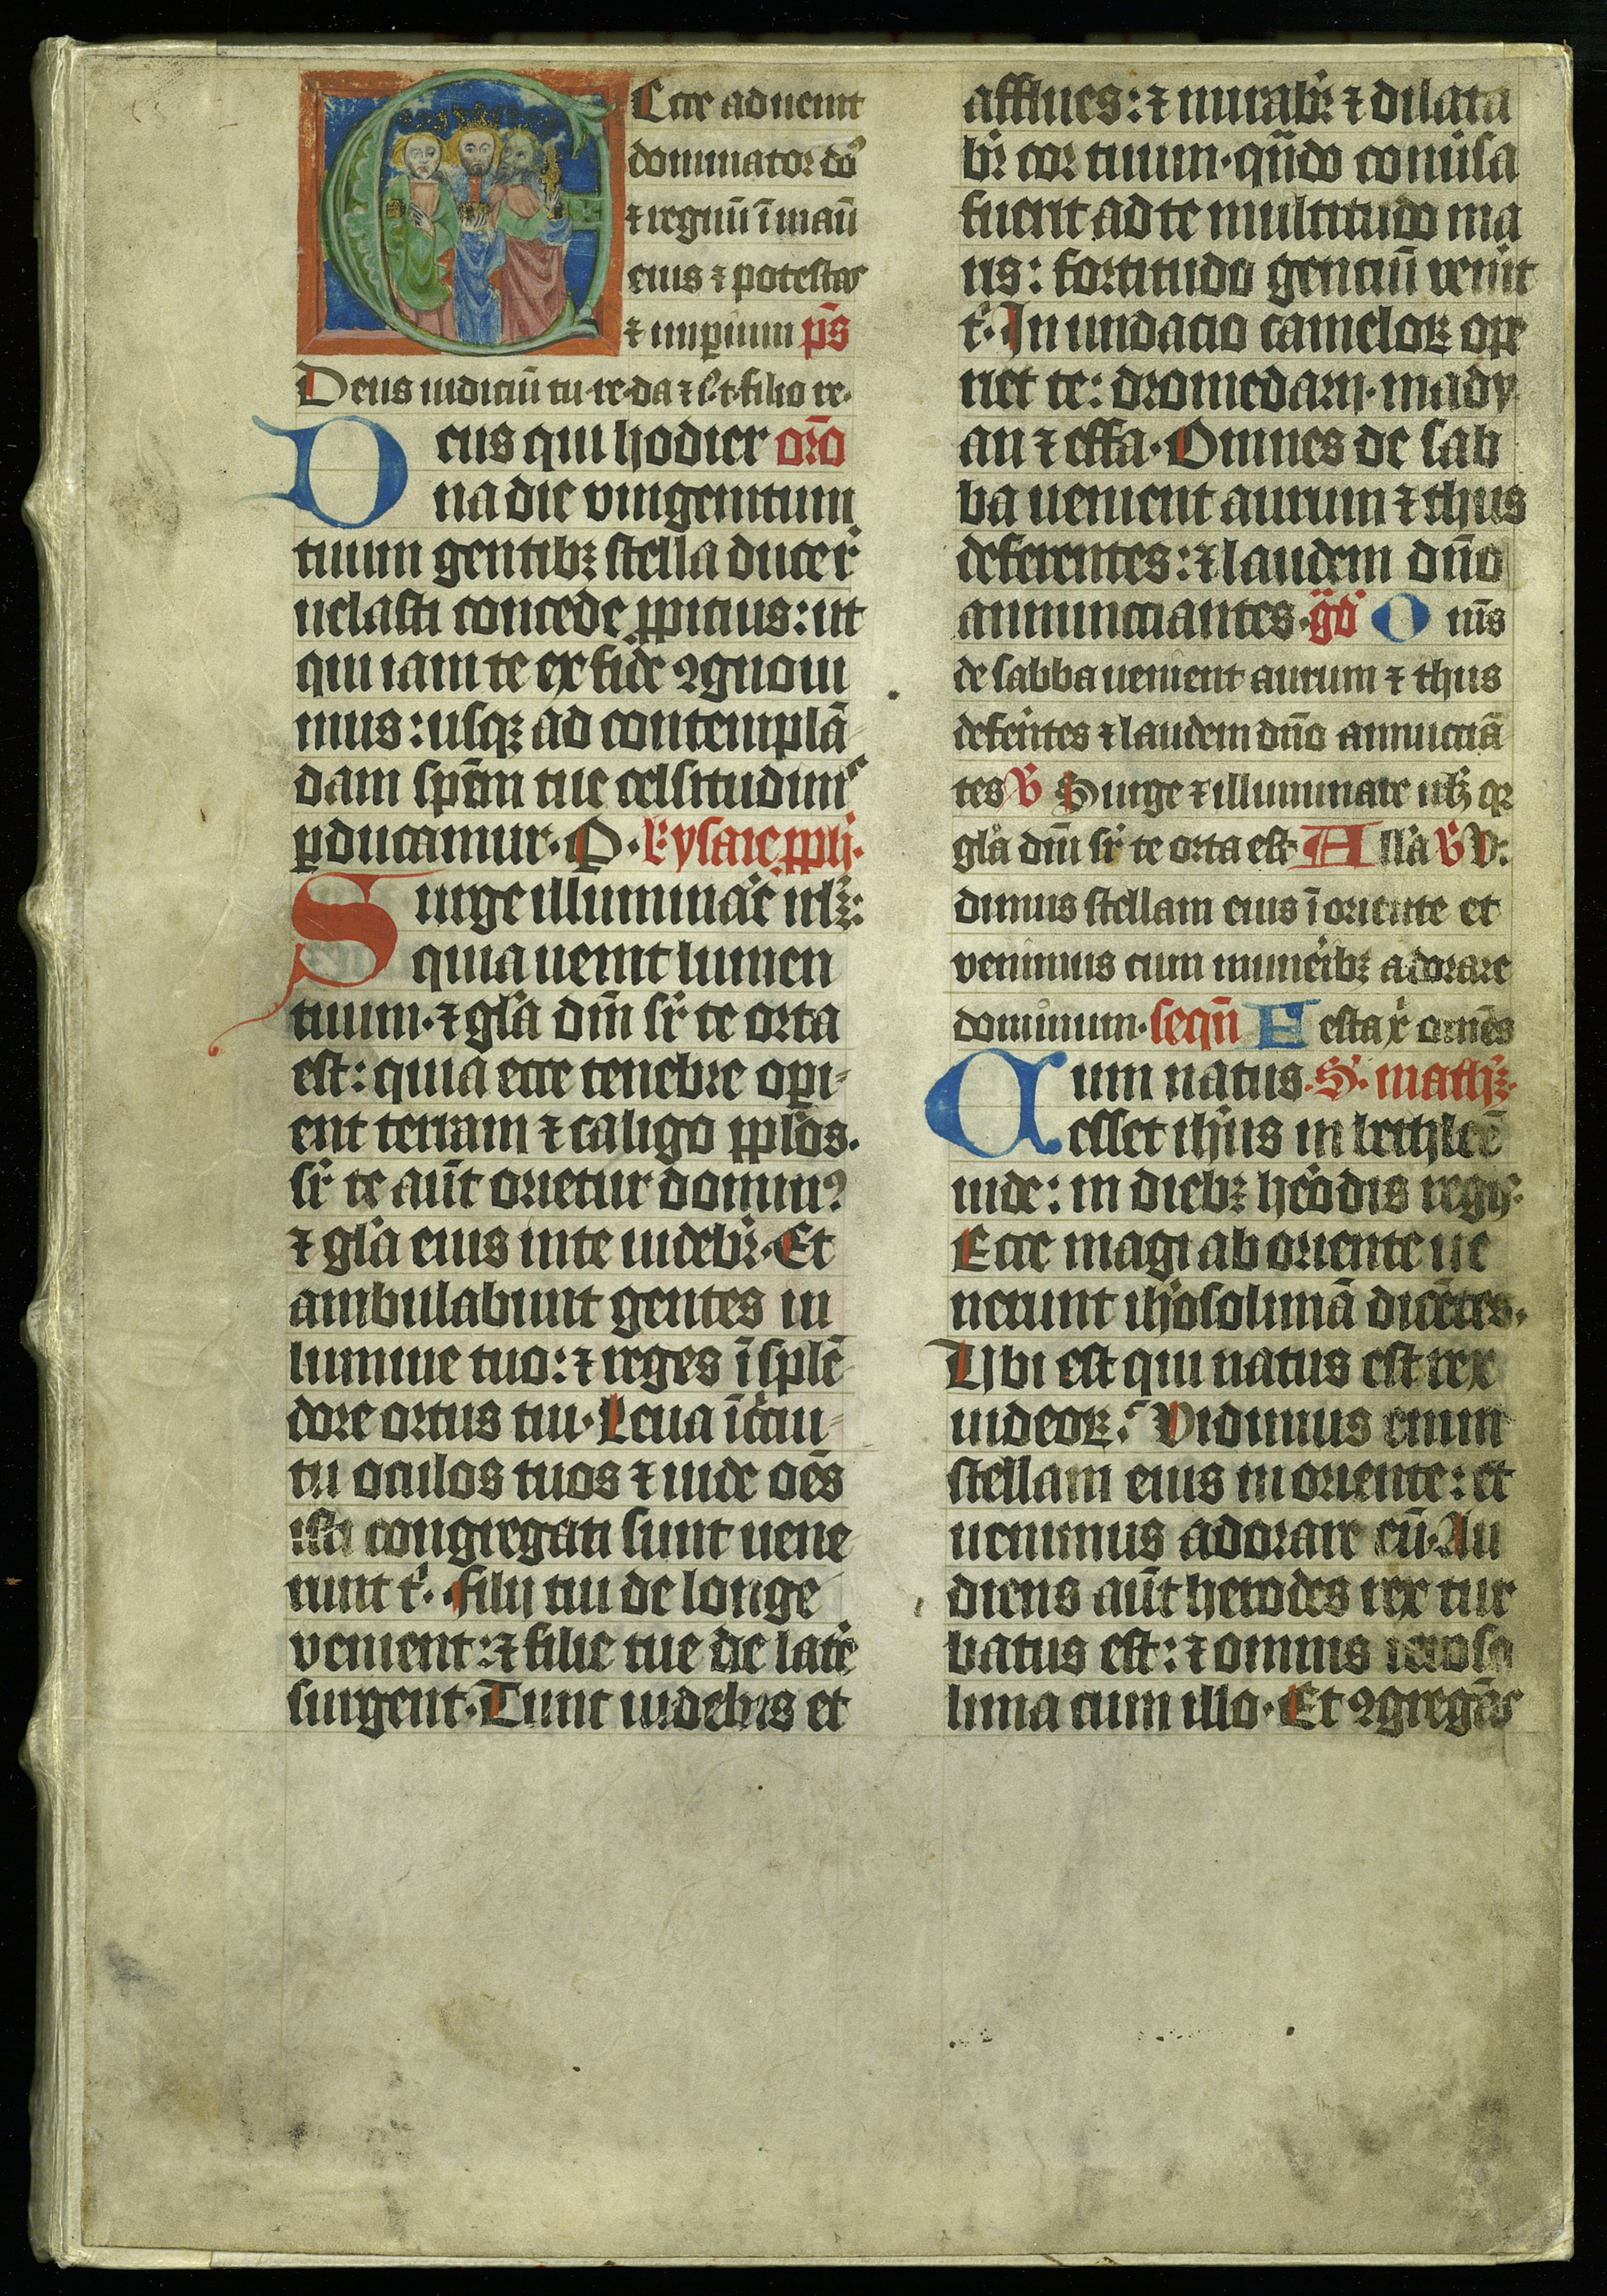 Ecce aduenit
dominator dn̄s
⁊ regnū ī manu
eius ⁊ potestas
⁊ imꝑium p̄s
Deus iudiciū tu· re· da ⁊ i· t· filio re·
Deus qui hodier or̄o
na die vnigenitum
tuum gentibꝫ stella duce r
uelasti concede ꝓpitius: ut
qui iam te ex fide ꝯgnoui
mus: usqꝫ ad contemplā
dam spēm tue celsitudinis
ꝑducamur· P· L· ysaie ꝓph·
Surge illuminare irl̄m:
quia uenit lumen
tuum· ⁊ gl̄a dn̄i sr̄ te orta
est: quia ecce tenebre opi
ent terram ⁊ caligo ppl̄os·
sr̄ te aūt orietur dominꝰ
⁊ gl̄a eius in te uidebr̄· Et
ambulabunt gentes in
lumine tuo: ⁊ reges ī splē
dore ortus tui· Leua ī cⁱcui
tu oculos tuos ⁊ uide oēs
isti congregati sunt uene
runt tⁱ· filij tui de longe
venient: ⁊ filie tue de latere
surgent· Tunc uidebis et
afflues: ⁊ mirabr̄ ⁊ dilata
br̄ cor tuum· qn̄do conuisa
fuerit ad te multitudo ma
ris: fortitudo genciū uenit
tⁱ· Inundacio cameloꝝ ope
riet te: dromedarij· mady
an ⁊ effa· Omnes de sab
ba uenient aurum ⁊ thus
deferentes: ⁊ laudem dn̄o
annuncciantes· gd̄ Om̄s
de sabba uenient aurum ⁊ thus
defentes ⁊ laudem dn̄o annucciā
tes V Surge ⁊ illuminare irl̄m qꝛ
gl̄a dn̄i sr̄ te orta est All̄a V Vi
dimus stellam eius ī oriente et
venimus cum muneribꝫ adorare
dominum· seqn̄ Festa xⁱ omnēs
Cum natus· S· math·
esset ih̄us in bethleē
iude: in diebꝫ herodis regis·
Ecce magi ab oriente ue
nerunt ih̄osolimā dicētes·
Ubi est qui natus est rex
iudeoꝝ? Vidimus enim
stellam eius in oriente: et
uenimus adorare eū· Au
diens aūt herodes rex tur
batus est: ⁊ omnis ieroso
lima cum illo· Et ꝯgregās